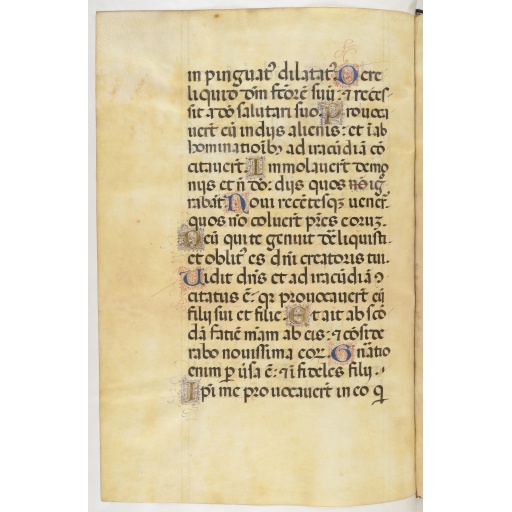 in pinguatꝰ dilatatꝰ. Dere
liquid dm̄ fctōrē suū: ⁊ reces-
sit a dō salutari suo. Prouoca
uert̄ eū in dijs alienis: et ī ab
hominatioībꝫ ad iracūdiā cō
citauert̄. Immolauert̄ demo
nijs et n̄ dō: dijs quos nō ig̅
rabāt. Noui recētesqꝫ uener̄.
quos nō coluert̄ pr̄es coruꝫ.
Deū qui te genuit dēliquisti.
et oblitꝰ es dn̄i creatoris tui.
Uidit dn̄s et ad iracūdiā ꝯ
citatus ē: qr prouocauert̄ eū
filij sui et filie. Et ait abscō
dā faciē m̄am ab eis: ⁊ cōsite
rabo nouissima eor̄. Gn̄atio
enim p̱ uīsa ē: ⁊ īfideles filij.
Ipi me prouocauert̄ in eo q̱